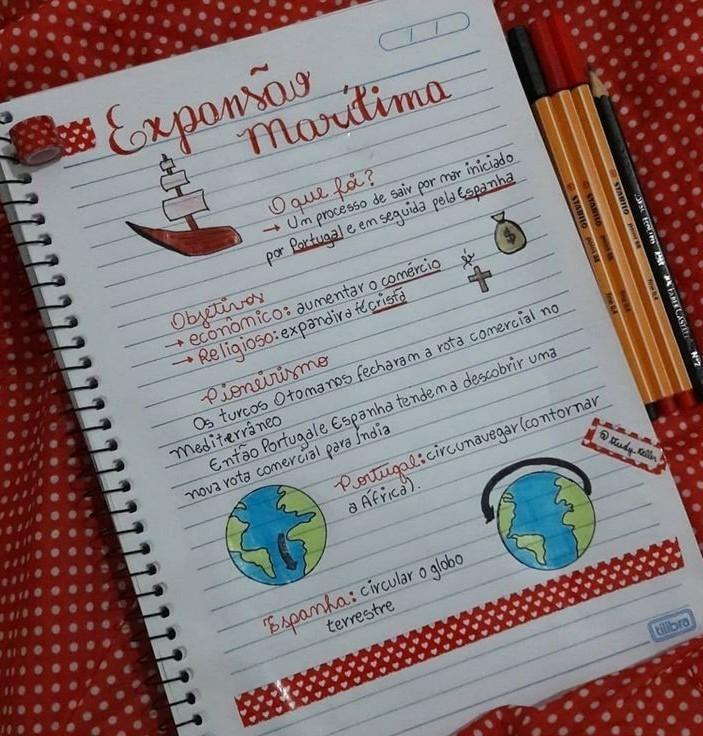 Expansão
Marítima
O que foi?
→ Um processo de sair por mar iniciado
por Portugal e em seguida pela Espanha
$
fé
Objetivos
→ econômico: aumentar o comércio
→ Religioso: expandir a fé cristã
Pioneirismo
Os turcos Otomanos fecharam a rota comercial no
mediterrâneo
Então Portugal e Espanha tendem a descobrir uma
nova rota comercial para Índia
Portugal: circunavegar (contornar
a África).
Espanha: circular o globo
terrestre
tilibra
STABILO
STABILO
STABILO
FABER-CASTELL
Nº2